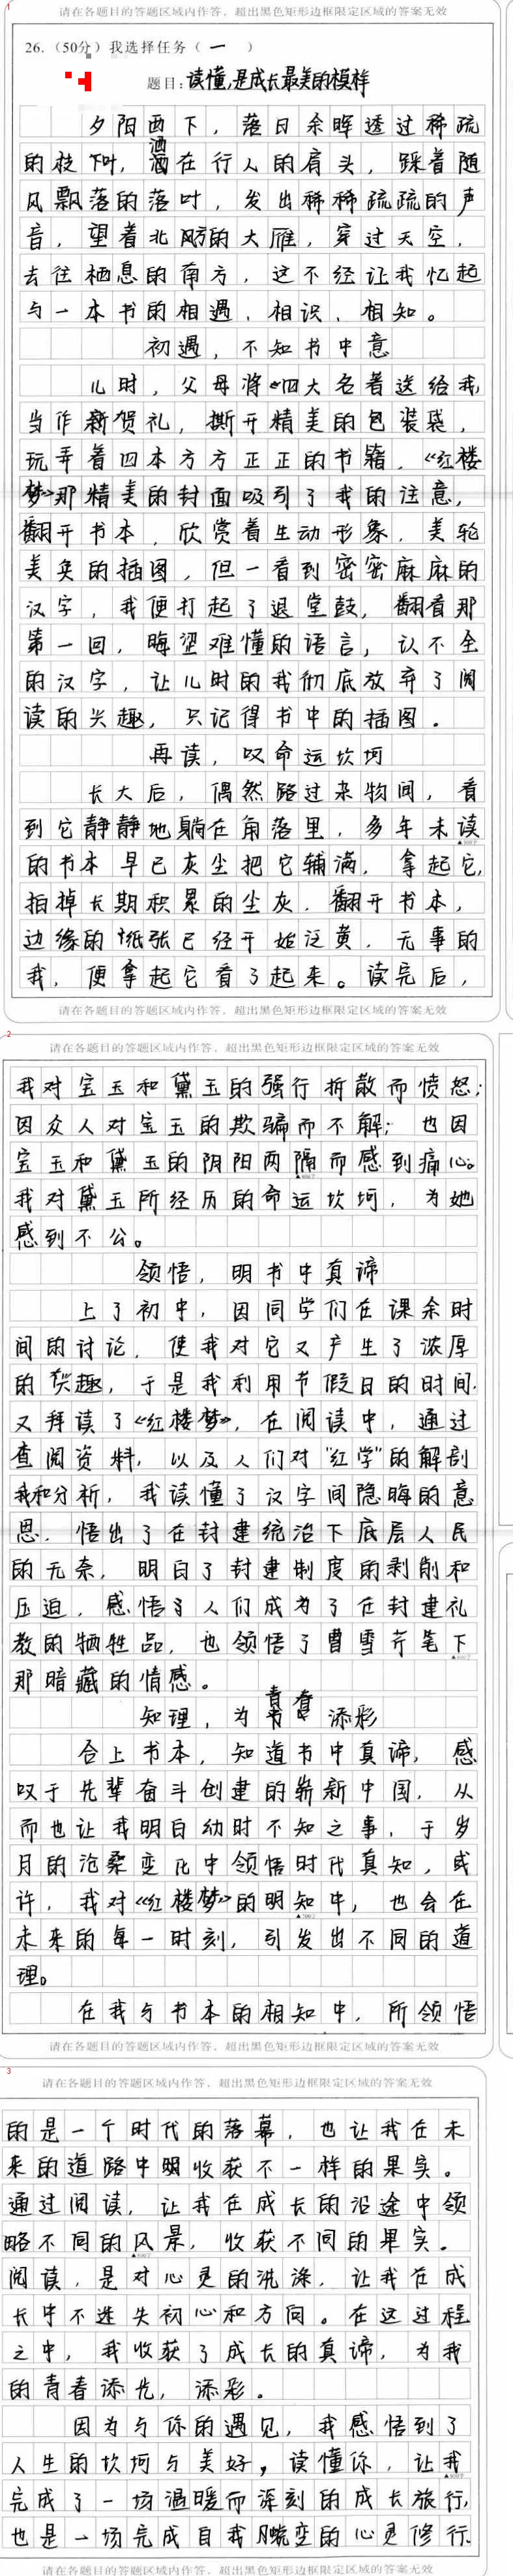 1
请在各题目的答题区域内作答，超出黑色矩形边框限定区域的答案无效
26.（50分）我选择任务（ 一 ）
题目：读懂，是成长最美的模样
夕阳西下，落日余晖透过稀疏
的枝叶，洒在行人的肩头，踩着随
风飘落的落叶，发出稀稀疏疏的声
音，望着北方的大雁，穿过天空，
去往栖息的南方，这不经让我忆起
与一本书的相遇、相识、相知。
初遇，不知书中意
儿时，父母将《四大名著送给我，
当作新贺礼，撕开精美的包装袋，
玩弄着四本方方正正的书籍，《红楼
梦》那精美的封面吸引了我的注意，
翻开书本，欣赏着生动形象，美轮
美奂的插图，但一看到密密麻麻的
汉字，我便打起了退堂鼓，翻看那
第一回，晦涩难懂的语言，认不全
的汉字，让儿时的我彻底放弃了阅
读的兴趣，只记得书中的插图。
再读，叹命运坎坷
长大后，偶然路过杂物间，看
到它静静地躺在角落里，多年未读
的书本早已灰尘把它铺满，拿起它，
拍掉长期积累的尘灰，翻开书本，
边缘的纸张已经开始泛黄，无事的
我，便拿起它看了起来。读完后，
请在各题目的答题区域内作答，超出黑色矩形边框限定区域的答案无效
2
请在各题目的答题区域内作答，超出黑色矩形边框限定区域的答案无效
我对宝玉和黛玉的强行拆散而愤怒；
因众人对宝玉的欺骗而不解；也因
宝玉和黛玉的阴阳两隔而感到痛心。
我对黛玉所经历的命运坎坷，为她
感到不公。
领悟，明书中真谛
上了初中，因同学们在课余时
间的讨论，使我对它又产生了浓厚
的兴趣，于是我利用节假日的时间，
又拜读了《红楼梦》，在阅读中，通过
查阅资料，以及人们对“红学”的解剖
和分析，我读懂了汉字间隐晦的意
思，悟出了在封建统治下底层人民
的无奈，明白了封建制度的剥削和
压迫，感悟了人们成为了在封建礼
教的牺牲品，也领悟了曹雪芹笔下
那暗藏的情感。
知理，为青春添彩
合上书本，知道书中真谛，感
叹于先辈奋斗创建的崭新中国，从
而也让我明白幼时不知之事，于岁
月的沧桑变化中领悟时代真知，或
许，我对《红楼梦》的明知中，也会在
未来的每一时刻，引发出不同的道
理。
在我与书本的相知中，所领悟
请在各题目的答题区域内作答，超出黑色矩形边框限定区域的答案无效
3
请在各题目的答题区域内作答，超出黑色矩形边框限定区域的答案无效
的是一个时代的落幕，也让我在未
来的道路中收获不一样的果实。
通过阅读，让我在成长的沿途中领
略不同的风景，收获不同的果实。
阅读，是对心灵的洗涤，让我在成
长中不迷失初心和方向。在这过程
之中，我收获了成长的真谛，为我
的青春添光，添彩。
因为与你的遇见，我感悟到了
人生的坎坷与美好，读懂你，让我
完成了一场温暖而深刻的成长旅行，
也是一场完成自我蜕变的心灵修行
请在各题目的答题区域内作答，超出黑色矩形边框限定区域的答案无效